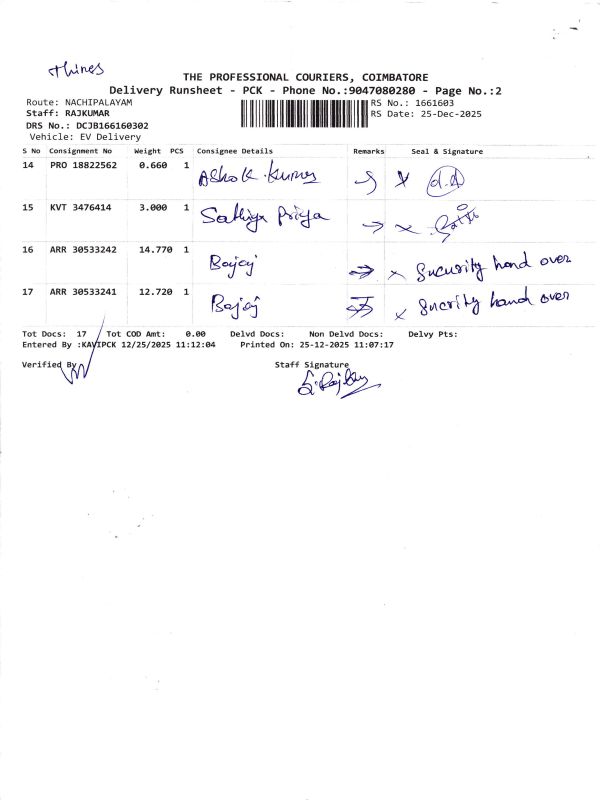 Thines
THE PROFESSIONAL COURIERS, COIMBATORE
Delivery Runsheet - PCK - Phone No.:9047080280 - Page No.:2
Route: NACHIPALAYAM RS No.: 1661603
Staff: RAJKUMAR RS Date: 25-Dec-2025
DRS No.: DCJB166160302
Vehicle: EV Delivery
S No Consignment No Weight PCS Consignee Details Remarks Seal & Signature
14 PRO 18822562 0.660 1 Ashok Kumar
15 KVT 3476414 3.000 1 Sathiya Priya
16 ARR 30533242 14.770 1 Bajaj Sucurity hand over
17 ARR 30533241 12.720 1 Bajaj Sucrity hand over
Tot Docs: 17 Tot COD Amt: 0.00 Delvd Docs: Non Delvd Docs: Delvy Pts:
Entered By :KAVIPCK 12/25/2025 11:12:04 Printed On: 25-12-2025 11:07:17
Verified By Staff Signature